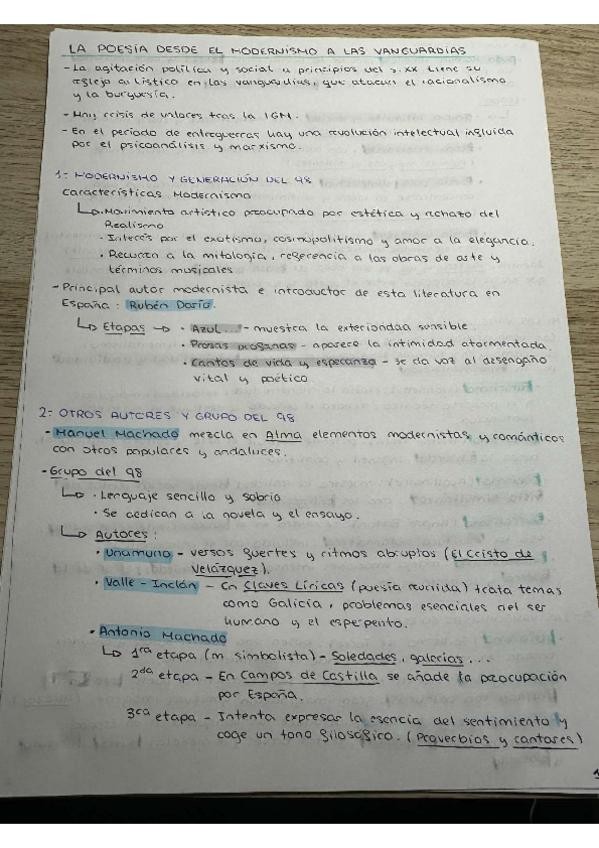 LA POESÍA DESDE EL MODERNISMO A LAS VANGUARDIAS
- La agitación política y social a principios del s.XX tiene su
reflejo artístico en las vanguardias, que atacan el racionalismo
y la burguesía.
- Hay crisis de valores tras la IGM.
- En el periodo de entreguerras hay una revolución intelectual influida
por el psicoanálisis y marxismo.
1: MODERNISMO Y GENERACIÓN DEL 98
Características Modernismo
↳ · Movimiento artístico preocupado por estética y rechazo del
Realismo
· Interés por el exotismo, cosmopolitismo y amor a la elegancia.
· Recurren a la mitología, referencia a las obras de arte y
términos musicales
- Principal autor modernista e introductor de esta literatura en
España: Rubén Darío.
↳ Etapas → · Azul... - muestra la exterioridad sensible
· Prosas profanas - aparece la intimidad atormentada
· Cantos de vida y esperanza - se da voz al desengaño
vital y poético
2: OTROS AUTORES Y GRUPO DEL 98
- Manuel Machado mezcla en Alma elementos modernistas y románticos
con otros populares y andaluces.
- Grupo del 98
↳ · Lenguaje sencillo y sobrio
· Se dedican a la novela y el ensayo.
↳ Autores:
· Unamuno - versos fuertes y ritmos abruptos (El Cristo de
Velázquez).
· Valle-Inclán - En Claves Líricas (poesía reunida) trata temas
como Galicia, problemas esenciales del ser
humano y el esperpento.
· Antonio Machado
↳ 1ra etapa (m. simbolista) - Soledades, galerías...
2da etapa - En Campos de Castilla se añade la preocupación
por España.
3era etapa - Intenta expresar la esencia del sentimiento y
coge un tono filosófico. (Proverbios y cantares)
1